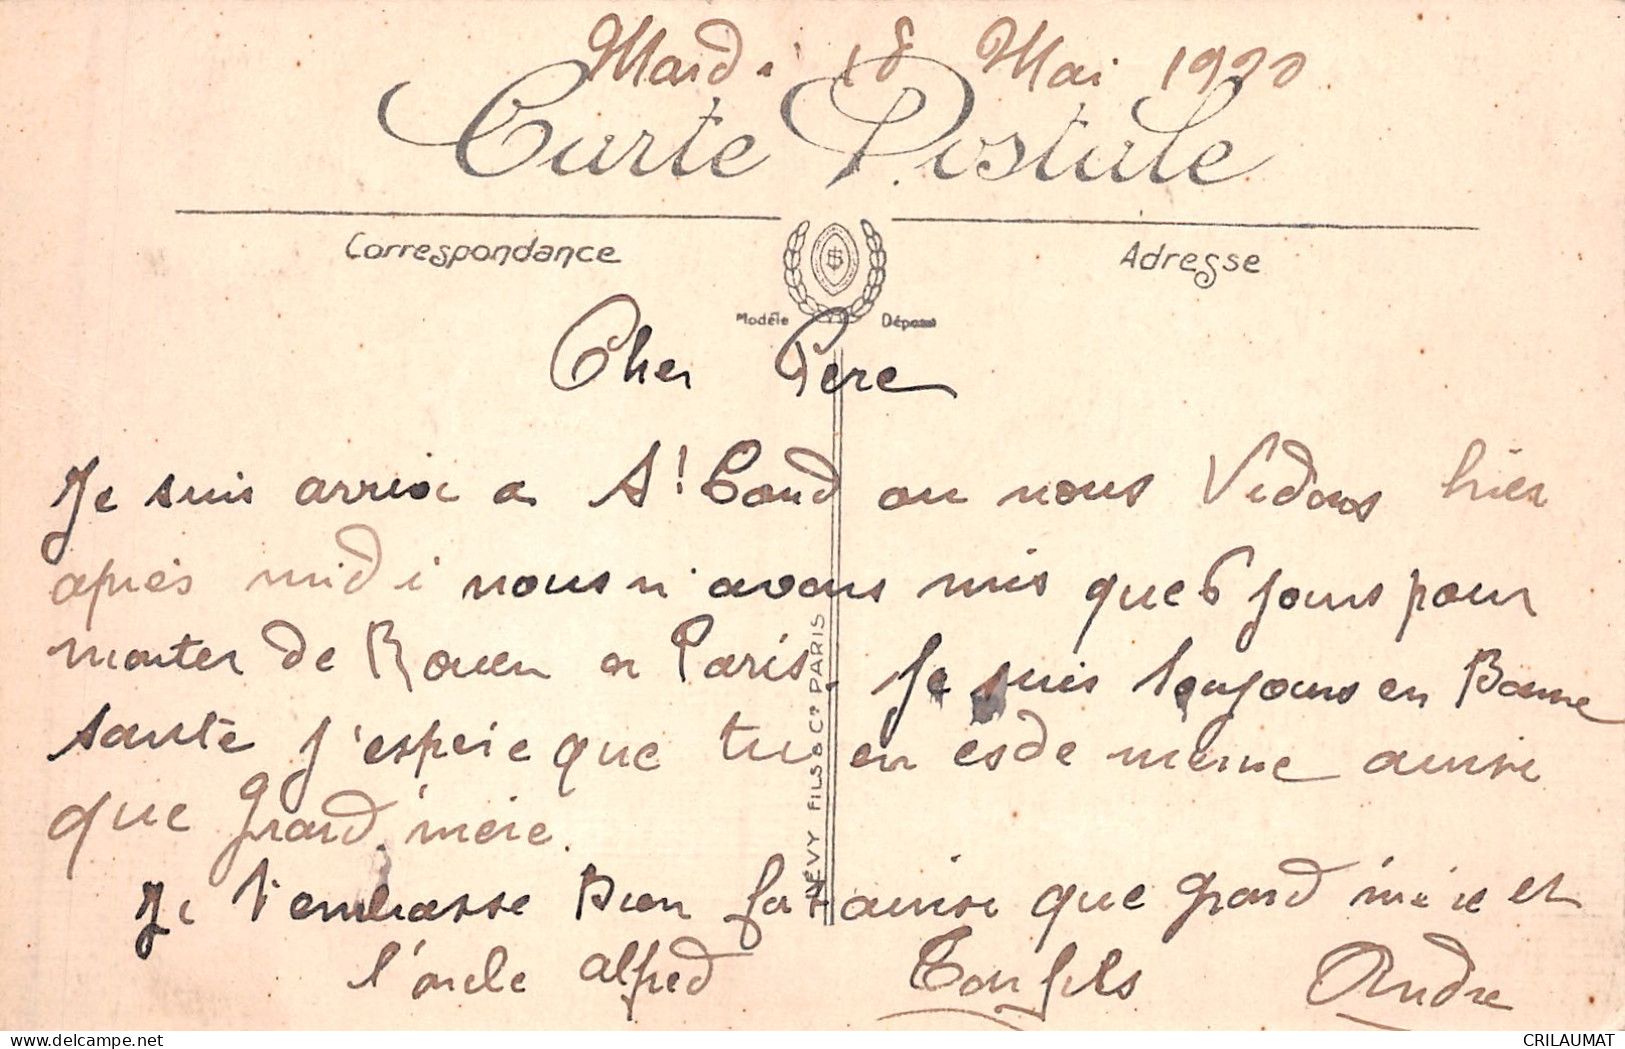 Mardi 18 Mai 1920
Carte Postale
Correspondance
Adresse
Modèle Déposé
Cher Pere
Je suis arrivé a St Cloud ou nous Vidons hier
après midi nous n'avons mis que 6 jours pour
monter de Rouen a Paris. Je suis toujours en Bonne
santé j'espère que tu en es de meme ainsi
que Grand'mère.
Je t'embrasse Bien fort ainsi que grand'mère et
l'oncle alfred Ton fils André
LÉVY FILS & Cº PARIS
delcampe.net
CRILAUMAT